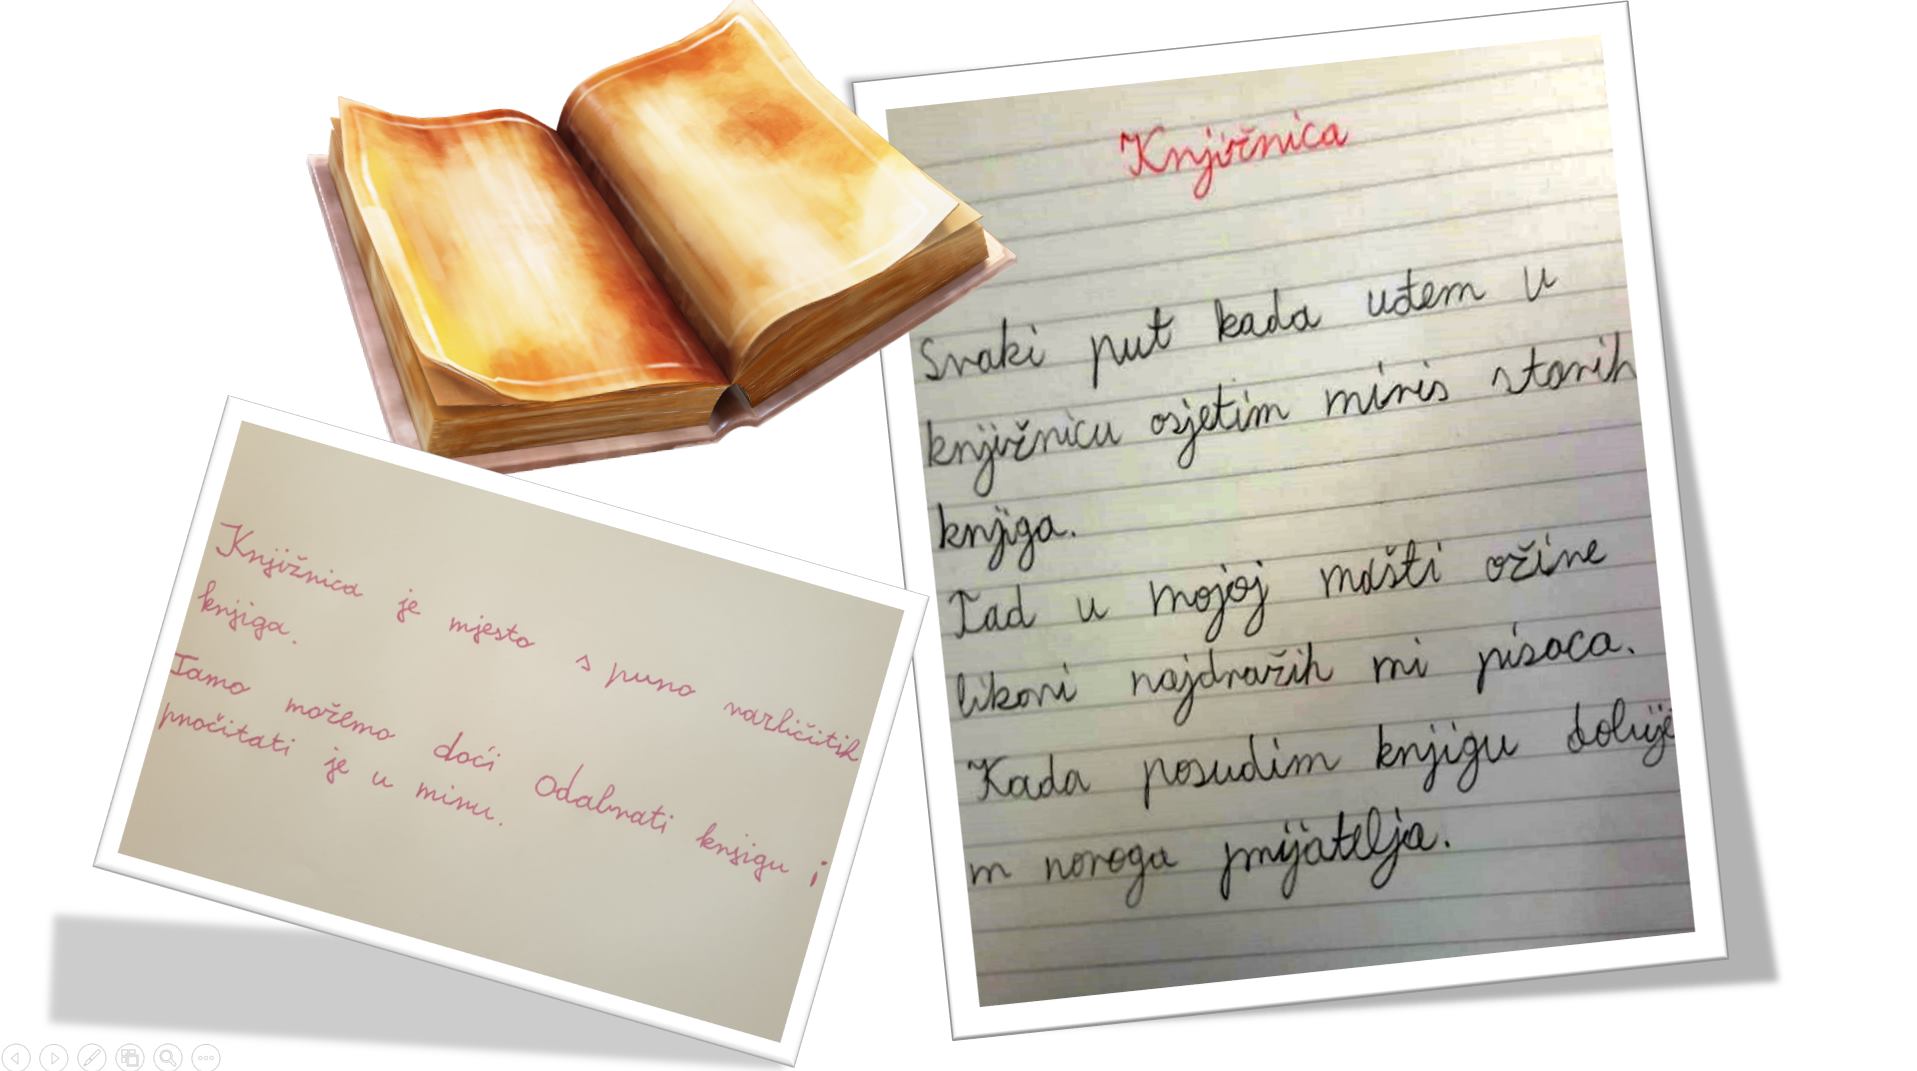 Knjižnica
Svaki put kada uđem u
knjižnicu osjetim miris starih
knjiga.
Tad u mojoj mašti ožive
likovi najdražih mi pisaca.
Kada posudim knjigu dobije
m novoga prijatelja.
Knjižnica je mjesto s puno različitih
knjiga.
Tamo možemo doći odabrati knjigu i
pročitati je u miru.